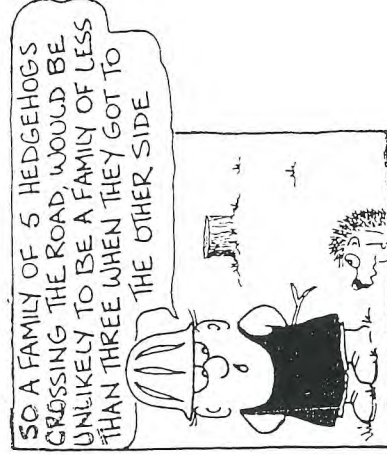 SO A FAMILY OF 5 HEDGEHOGS
CROSSING THE ROAD, WOULD BE
UNLIKELY TO BE A FAMILY OF LESS
THAN THREE WHEN THEY GOT TO
THE OTHER SIDE